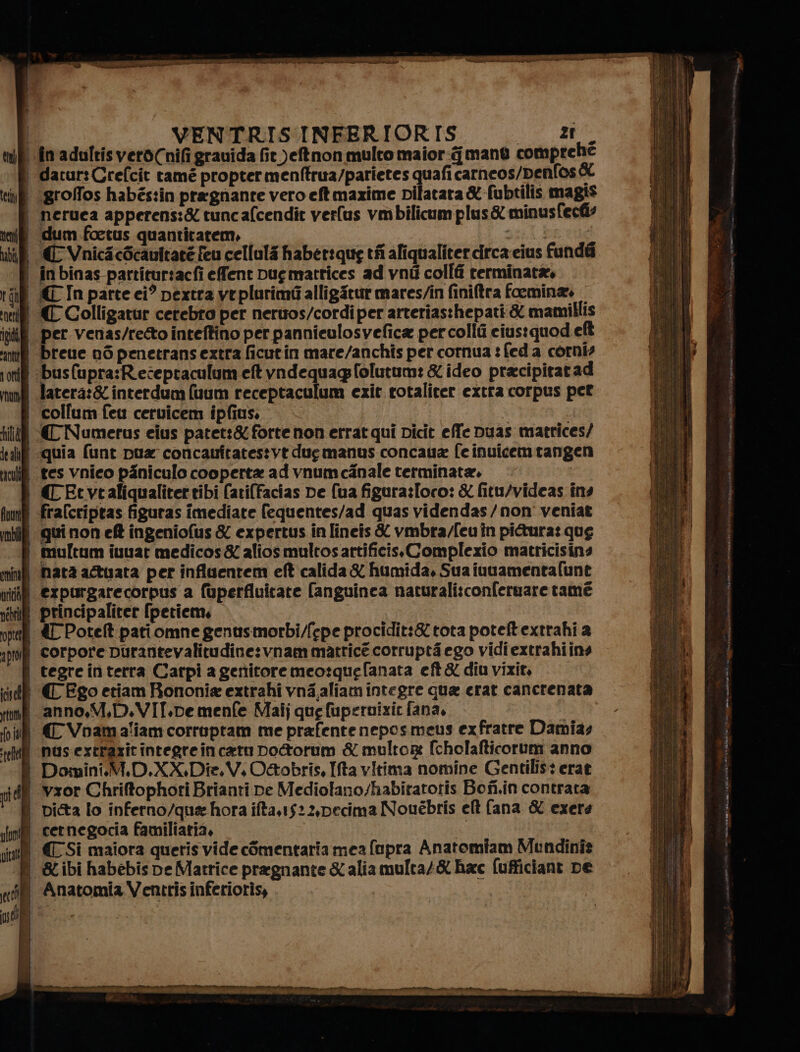 VENTRIS INFERIORIS 21
in adultis veró(nisi grauida sit) est non multo maior q̃ manũ comprehẽ
datur: Crescit tamẽ propter menstrua/parietes quasi carneos/densos &
grossos habẽs: in pręgnante vero est maxime dilatata & subtilis magis
neruea apperens: & tunc ascendit versus vmbilicum plus & minus secũ⸗
dum foetus quantitatem.
⁋ Vnicã cõcauitatẽ seu cellulã habet: que tñ aliqualiter circa eius fundũ
in binas partitur: ac si essent due matrices ad vnũ collũ terminatæ.
⁋ In parte eiꝰ dextra vt plurimũ alligãtur mares/in sinistra foeminæ.
⁋ Colligatur cerebro per neruos/cordi per arterias: hepati & mamillis
per venas/recto intestino per panniculos vesicæ per collũ eius: quod est
breue nõ penetrans extra sicut in mare/anchis per cornua: sed a corni⸗
bus supra: Receptaculum est vndequaq; solutum: & ideo præcipitat ad
latera: & interdum suum receptaculum exit totaliter extra corpus per
collum seu ceruicem ipsius.
⁋ Numerus eius patet: & forte non errat qui dicit esse duas matrices/
quia sunt duæ concauitates: vt duę manus concauæ se inuicem tangen
tes vnico pãniculo coopertæ ad vnum cãnale terminatæ.
⁋ Et vt aliqualiter tibi satisfacias de sua figura: loro: & situ/videas in⸗
frascriptas figuras imediate sequentes/ad quas videndas/non veniat
qui non est ingeniosus & expertus in lineis & vmbra/seu in pictura: quę
multum iuuat medicos & alios multos artificis. Complexio matricis in⸗
nata actuata per influentem est calida & humida. Sua iuuamenta sunt
expurgare corpus a superfluitate sanguinea naturali: conseruare tamẽ
principaliter spetiem.
⁋ Potest pati omne genus morbi/sępe procidit: & tota potest extrahi a
corpore durante valitudine: vnam matricẽ corruptã ego vidi extrahi in⸗
tegre in terra Carpi a genitore meo: quę sanata est & diu vixit.
⁋ Ego etiam Bononiæ extrahi vnã aliam integre quæ erat cancrenata
anno.M.D.VII. de mense Maij quę superuixit sana.
⁋ Vnam aliam corruptam me præsente nepos meus ex fratre Damia⸗
nus extraxit integre in cætu doctorum & multoꝝ scholasticorum anno
Domini.M.D.XX. Die.V. Octobris. Ista vltima nomine Gentilis: erat
vxor Christophori Brianti de Mediolano/habitatoris Boñ. in contrata
dicta lo inferno/quæ hora ista.1522. decima Nouẽbris est sana & exer⸗
cet negocia familiaria.
⁋ Si maiora queris vide cõmentaria mea supra Anatomiam Mundini:
& ibi habebis de Matrice prægnante & alia multa/& hæc sufficiant de
Anatomia Ventris inferioris,